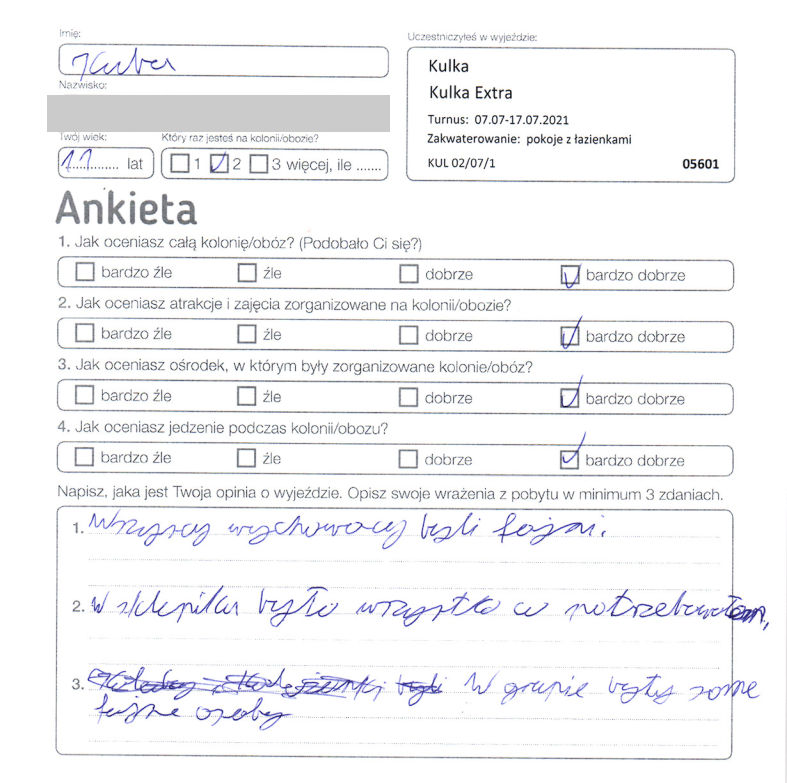 Imię:
Kuba
Nazwisko:
Twój wiek:
11 lat
Który raz jesteś na kolonii/obozie?
1 2 3 więcej, ile .......
Uczestniczyłeś w wyjeździe:
Kulka
Kulka Extra
Turnus: 07.07-17.07.2021
Zakwaterowanie: pokoje z łazienkami
KUL 02/07/1 05601
Ankieta
1. Jak oceniasz całą kolonię/obóz? (Podobało Ci się?)
bardzo źle źle dobrze bardzo dobrze
2. Jak oceniasz atrakcje i zajęcia zorganizowane na kolonii/obozie?
bardzo źle źle dobrze bardzo dobrze
3. Jak oceniasz ośrodek, w którym były zorganizowane kolonie/obóz?
bardzo źle źle dobrze bardzo dobrze
4. Jak oceniasz jedzenie podczas kolonii/obozu?
bardzo źle źle dobrze bardzo dobrze
Napisz, jaka jest Twoja opinia o wyjeździe. Opisz swoje wrażenia z pobytu w minimum 3 zdaniach.
1. Wszyscy wychowacy byli fajni.
2. W sklepiku było wszystko co potrzebowałem.
3. W grupie były same
fajne osoby